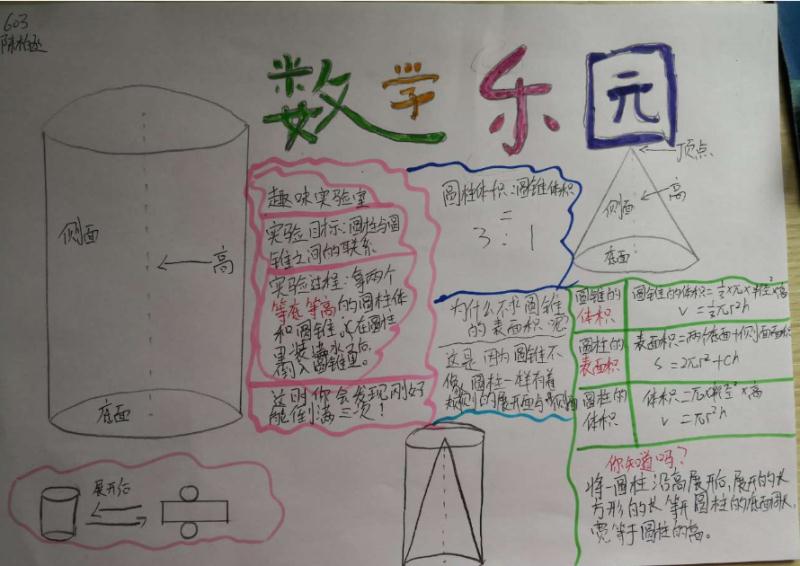 603
陈柏丞
数学乐园
侧面
高
底面
趣味实验室
实验目标:圆柱与圆
锥之间的联系
实验过程:拿两个
等底等高的圆柱体
和圆锥,水在圆柱
里装满水后
倒入圆锥里。
这时你会发现刚好
能倒满三次!
圆柱体积:圆锥体积
=
3:1
为什么不求圆锥
的表面积呢
这是因为圆锥不
像圆柱一样有着
规则的展开面与侧面
顶点
高
侧面
底面
圆锥的
体积
圆锥的体积=⅓×π×半径²×高
V=⅓πr²h
圆柱的
表面积
表面积=两个底面+侧面面积
S=2πr²+Ch
圆柱的
体积
体积=π×半径²×高
V=πr²h
你知道吗?
将一圆柱沿高展开后,展开的长
方形的长等于圆柱的底面周长,
宽等于圆柱的高。
展开后